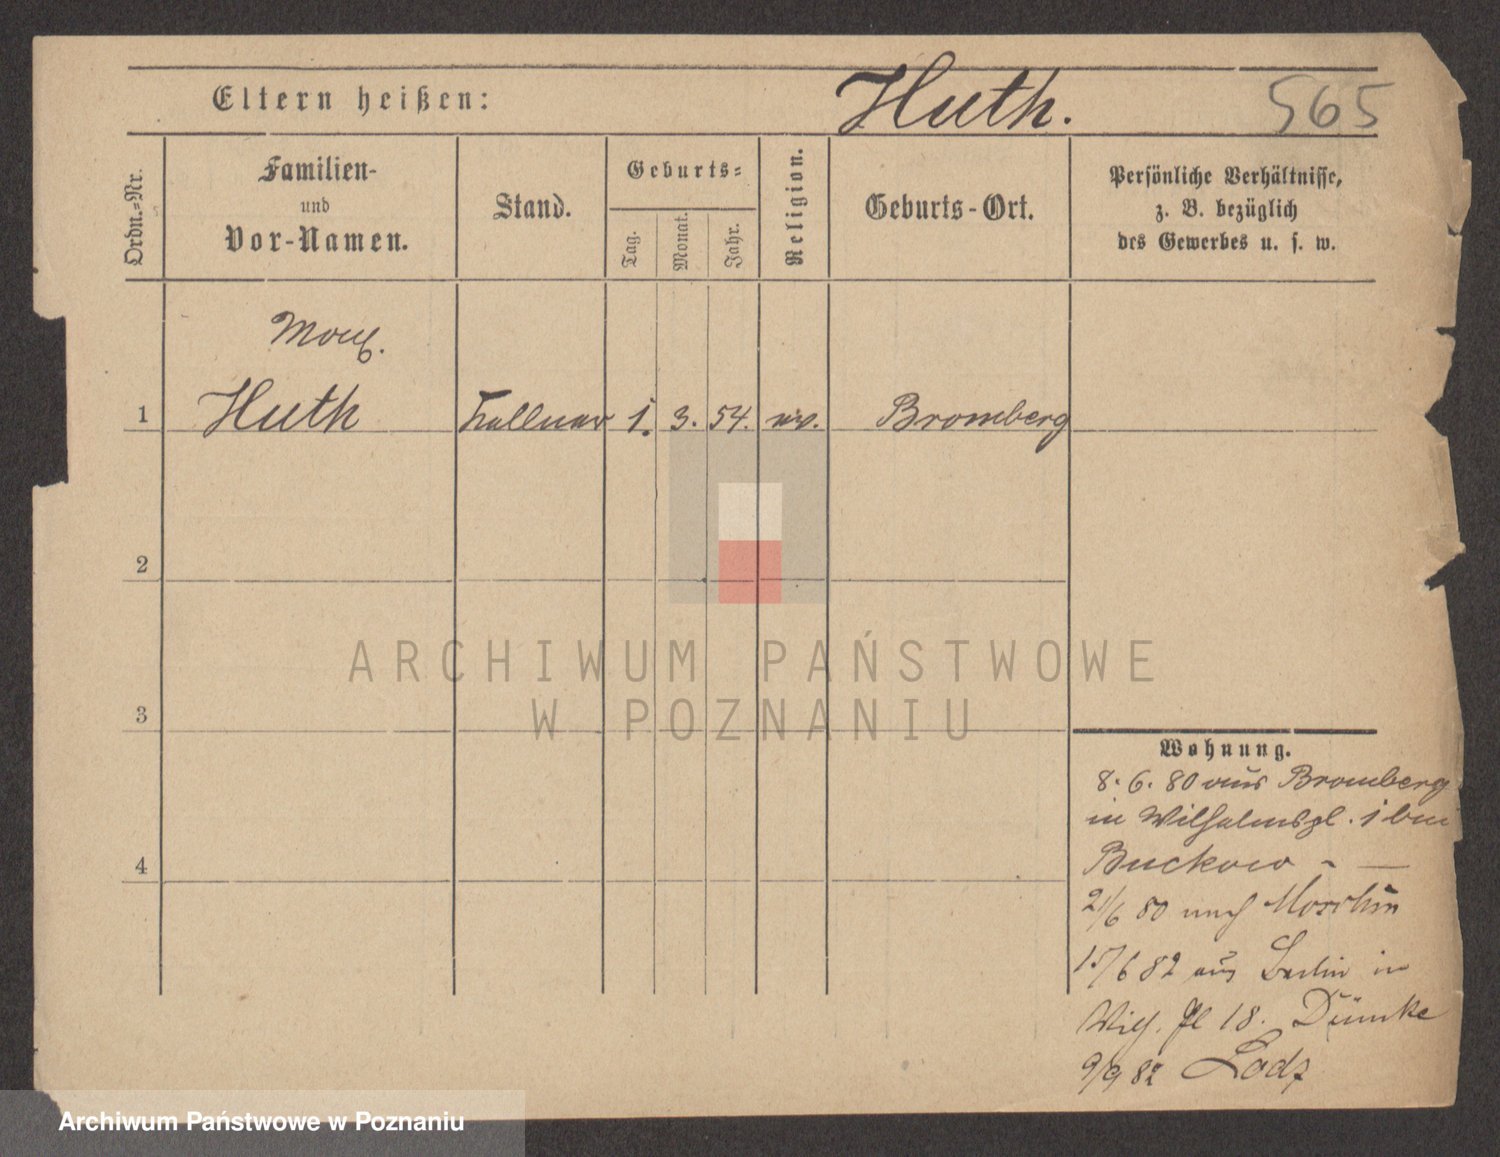 Eltern heißen:
Huth.
565
Ordn.-Nr.
Familien-
und
Vor-Namen.
Stand.
Geburts-
Tag.
Monat.
Jahr.
Religion.
Geburts-Ort.
Persönliche Verhältnisse,
z. B. bezüglich
des Gewerbes u. s. w.
1
Huth
Kellner
1.
3.
54.
ev.
Bromberg
2
3
4
Wohnung.
8. 6. 80 aus Bromberg
in Wilhelmspl. 1 bei
Buckow
21/6 80 nach Morschin
17/6 82 aus Berlin in
Wilh. Pl 18. Dümke
9/9 82 Lodz
ARCHIWUM PAŃSTWOWE
W POZNANIU
Archiwum Państwowe w Poznaniu